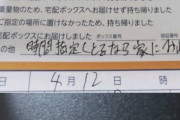 量物のため、宅配ボックスへお届けせず持ち帰りました
ご指定の場所に置けなかったため、持ち帰りました
宅配ボックスにお届けしました
の他 時間指定しとるなら家に
4月12日 時